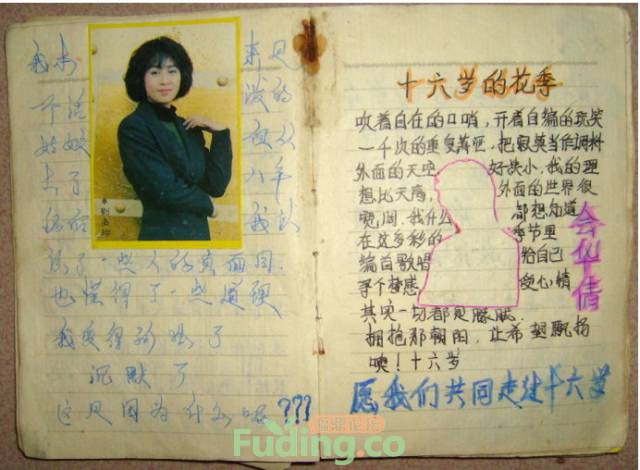 我本 来是
个活 泼的
姑娘 自从
去了
我认
识了一些人的真面目.
也懂得了一些道理
我变得孤独了
沉默了
这是因为什么呢???
十六岁的花季
吹着自在的口哨，开着自编的玩笑
一千次的重复潇洒，把寂寞当作调料
外面的天空 好狭小，我的理
想比天高， 外面的世界很
闹，我什么 都想知道
在这多彩的 季节里
编首歌唱 给自己
寻个梦感 受心情
其实一切都是朦胧.
拥抱那朝阳，让希望飘扬
噢！十六岁
华倩
愿我们共同走过十六岁
福鼎论坛
Fuding.co